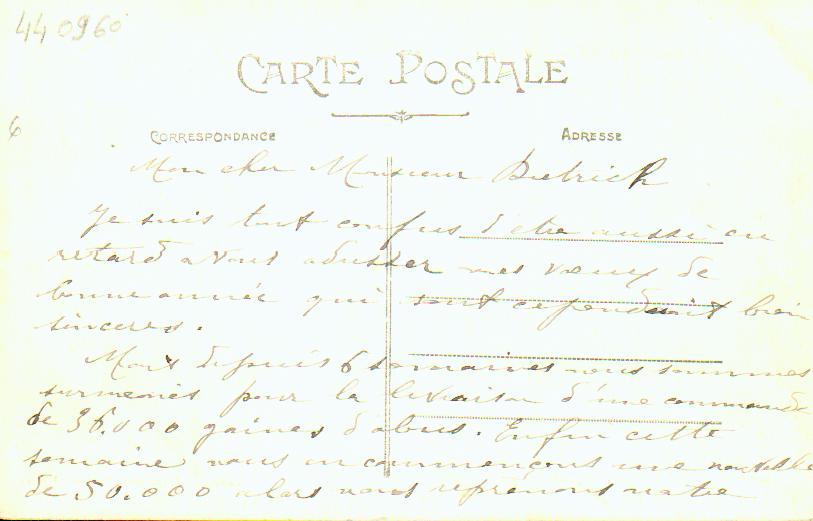 44 0960
CARTE POSTALE
CORRESPONDANCE
ADRESSE
6
Mon cher Monsieur Dietrich
Je suis tout confus d'être aussi en
retard a vous adresser mes vœux de
bonne année qui sont cependant bien
sincères.
Mais depuis 6 semaines nous sommes
surmenés pour la livraison d'une commande
de 36.000 gaines d'obus. Enfin cette
semaine nous en commençons une nouvelle
de 50.000 alors nous reprenons notre